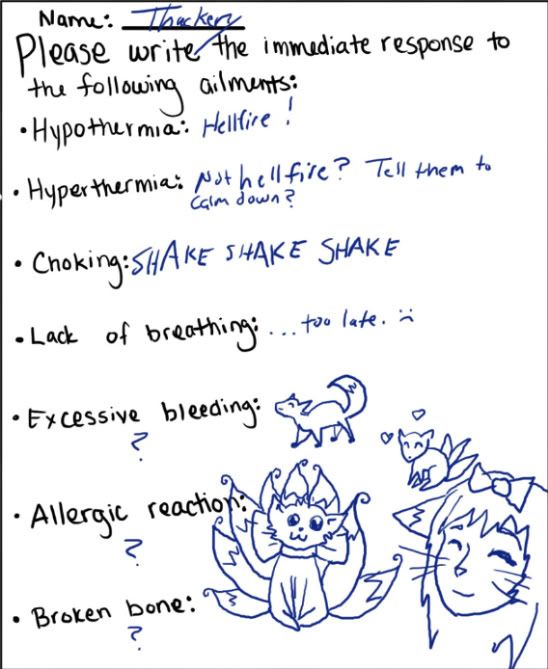 Name: Thackery
Please write the immediate response to
the following ailments:
• Hypothermia: Hellfire!
• Hyperthermia: Not hellfire? Tell them to
calm down?
• Choking: SHAKE SHAKE SHAKE
• Lack of breathing: ... too late. :(
• Excessive bleeding:
?
• Allergic reaction:
?
• Broken bone:
?